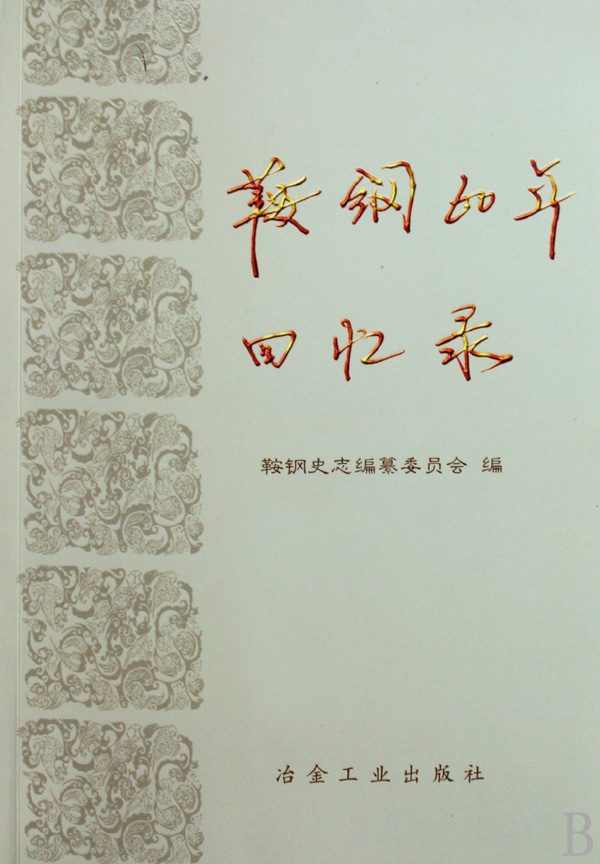 鞍钢60年
回忆录
鞍钢史志编纂委员会 编
冶金工业出版社
B